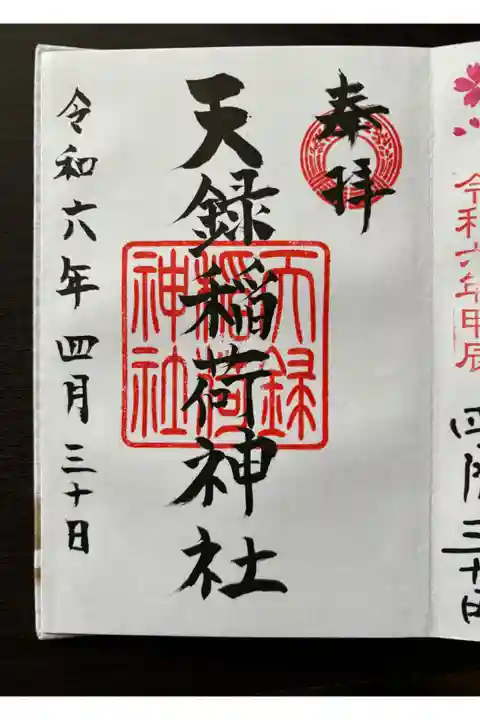 令和六年甲辰
四月三十日
奉拝
天録稲荷神社
天録
稲荷
神社
令和六年四月三十日